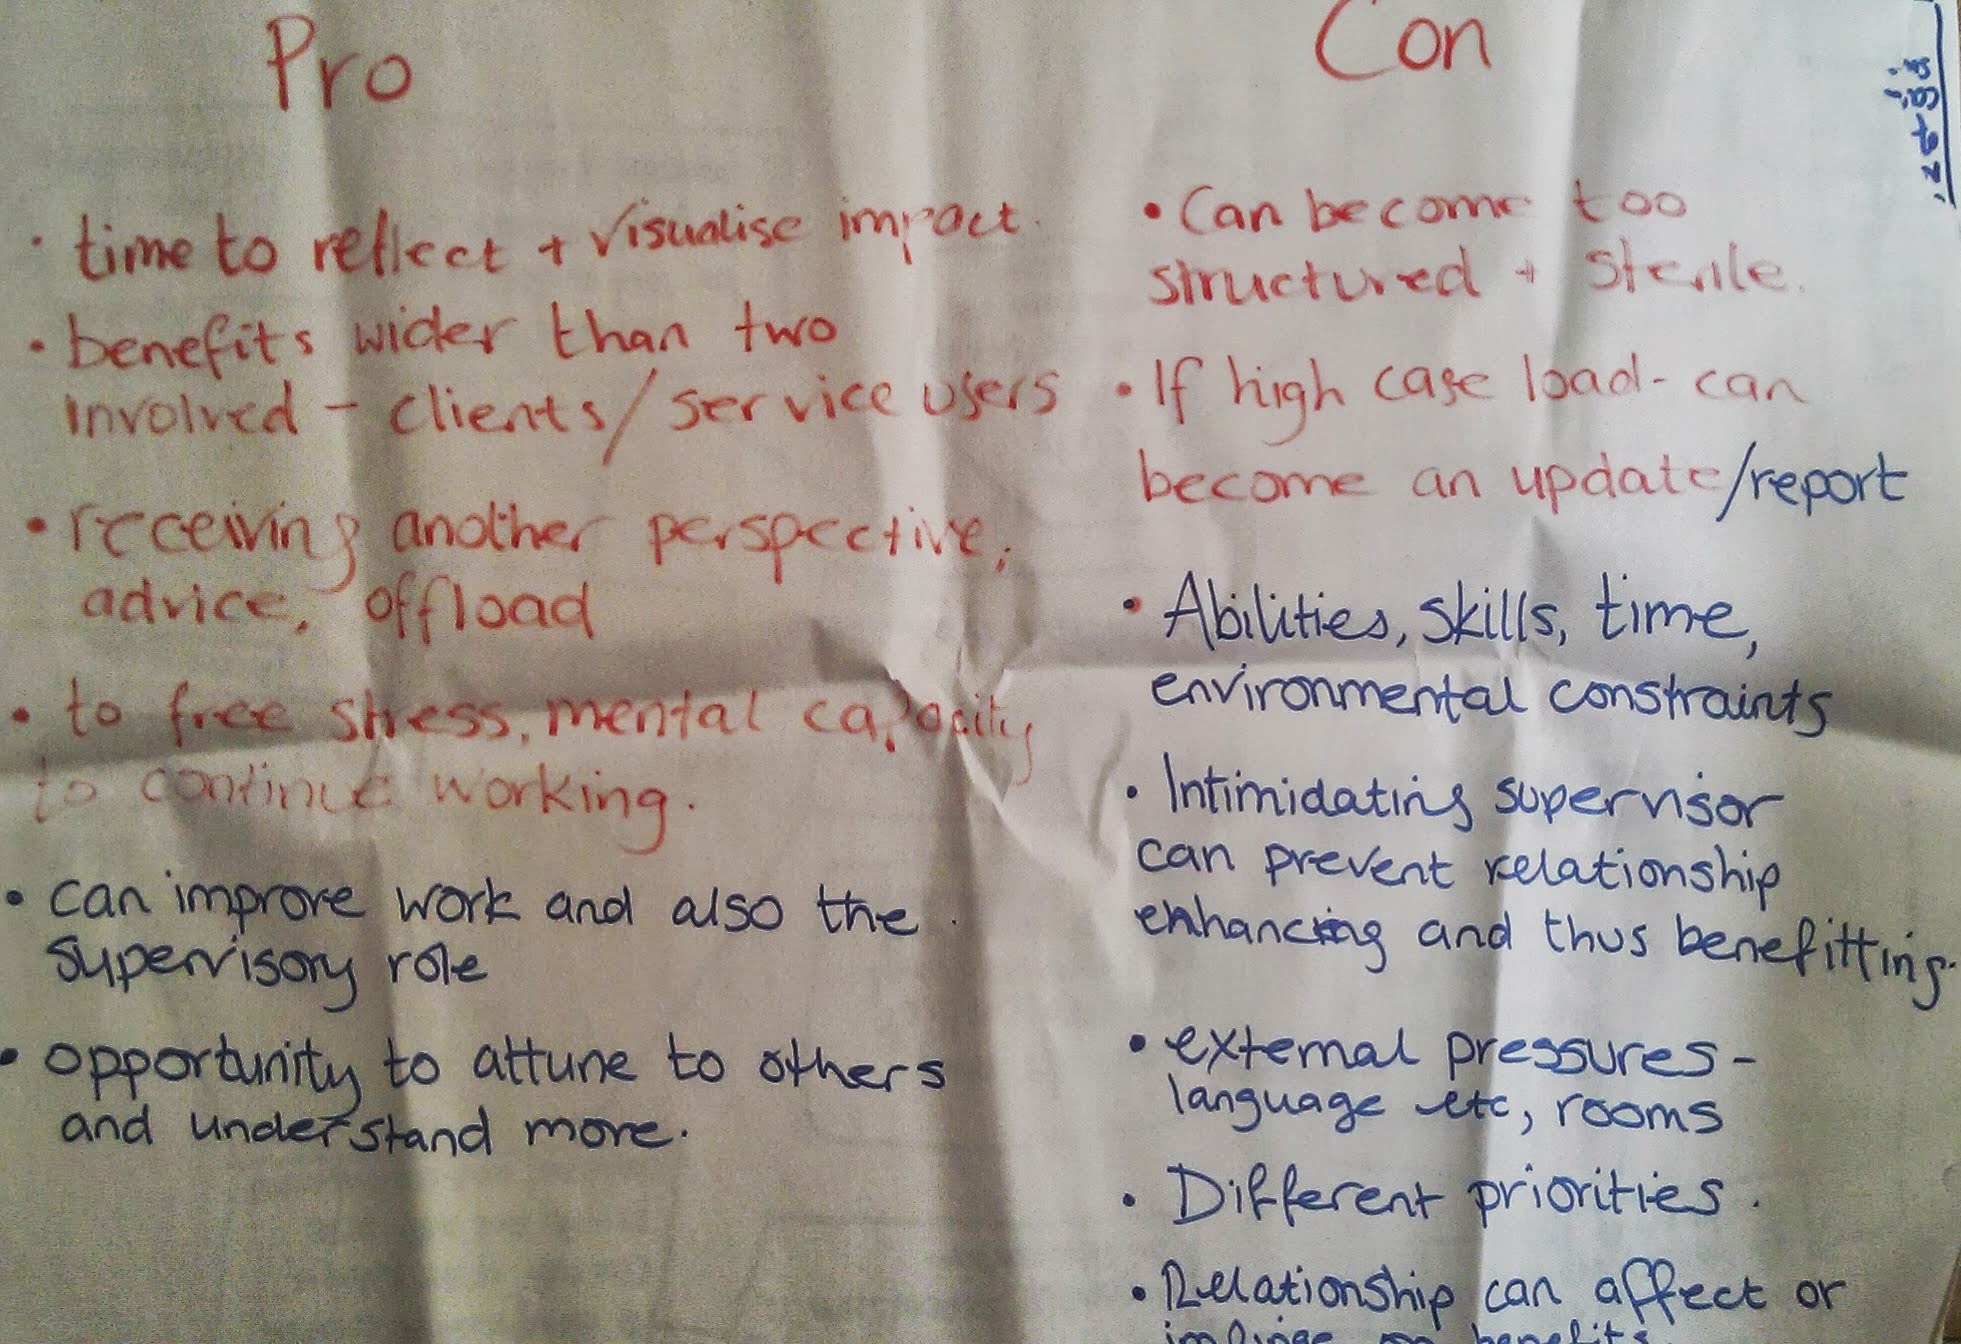 Pro
• time to reflect + visualise impact.
• benefits wider than two
involved - clients/service users
• receiving another perspective,
advice, offload
• to free stress, mental capacity
to continue working.
• can improve work and also the
supervisory role
• opportunity to attune to others
and understand more.
Con
• Can become too
structured + sterile.
• If high case load - can
become an update/report
• Abilities, skills, time,
environmental constraints
• Intimidating supervisor
can prevent relationship
enhancing and thus benefitting.
• external pressures -
language etc, rooms
• Different priorities.
• Relationship can affect or
impinge on benefits.